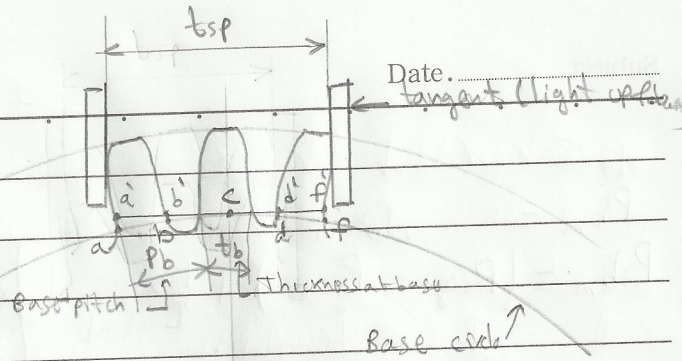 tsp
Date.
tangent (light
a' b' c d' f'
a b d f
Pb tb
Base pitch
Thickness at base
Base circle